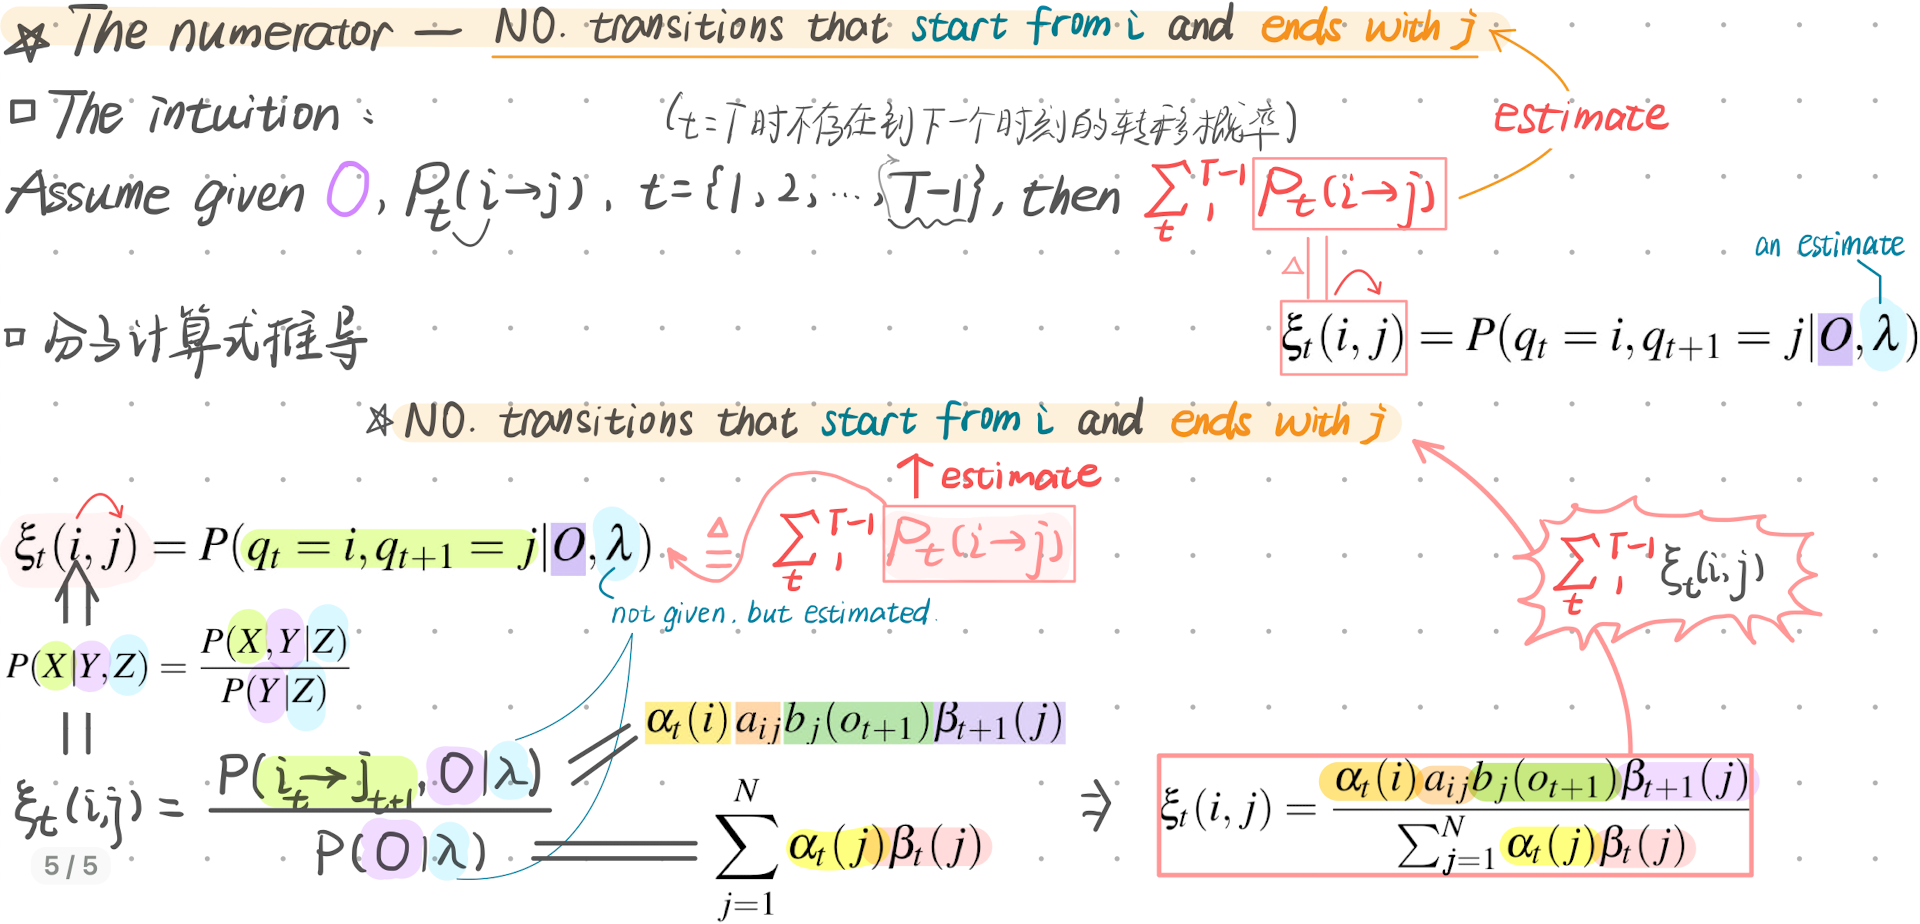 ☆ The numerator — NO. transitions that start from i and ends with j
□ The intuition :
(t=T时不存在到下一个时刻的转移概率)
estimate
Assume given O, P_t(i→j), t={1, 2, ..., T-1}, then ∑_t^{T-1}_1 P_t(i→j)
≜
an estimate
□ 分子计算式推导
ξ_t(i, j) = P(q_t = i, q_{t+1} = j|O, λ)
☆ NO. transitions that start from i and ends with j
↑ estimate
ξ_t(i, j) = P(q_t = i, q_{t+1} = j|O, λ) ≜ ∑_t^{T-1}_1 P_t(i→j)
∑_t^{T-1}_1 ξ_t(i,j)
not given. but estimated.
P(X|Y, Z) = P(X, Y|Z) / P(Y|Z)
α_t(i) a_{ij} b_j(o_{t+1}) β_{t+1}(j)
ξ_t(i,j) = P(i_t→j_{t+1}, O|λ) / P(O|λ)
∑_{j=1}^{N} α_t(j)β_t(j)
⇒ ξ_t(i, j) = α_t(i) a_{ij} b_j(o_{t+1}) β_{t+1}(j) / ∑_{j=1}^{N} α_t(j)β_t(j)
5 / 5